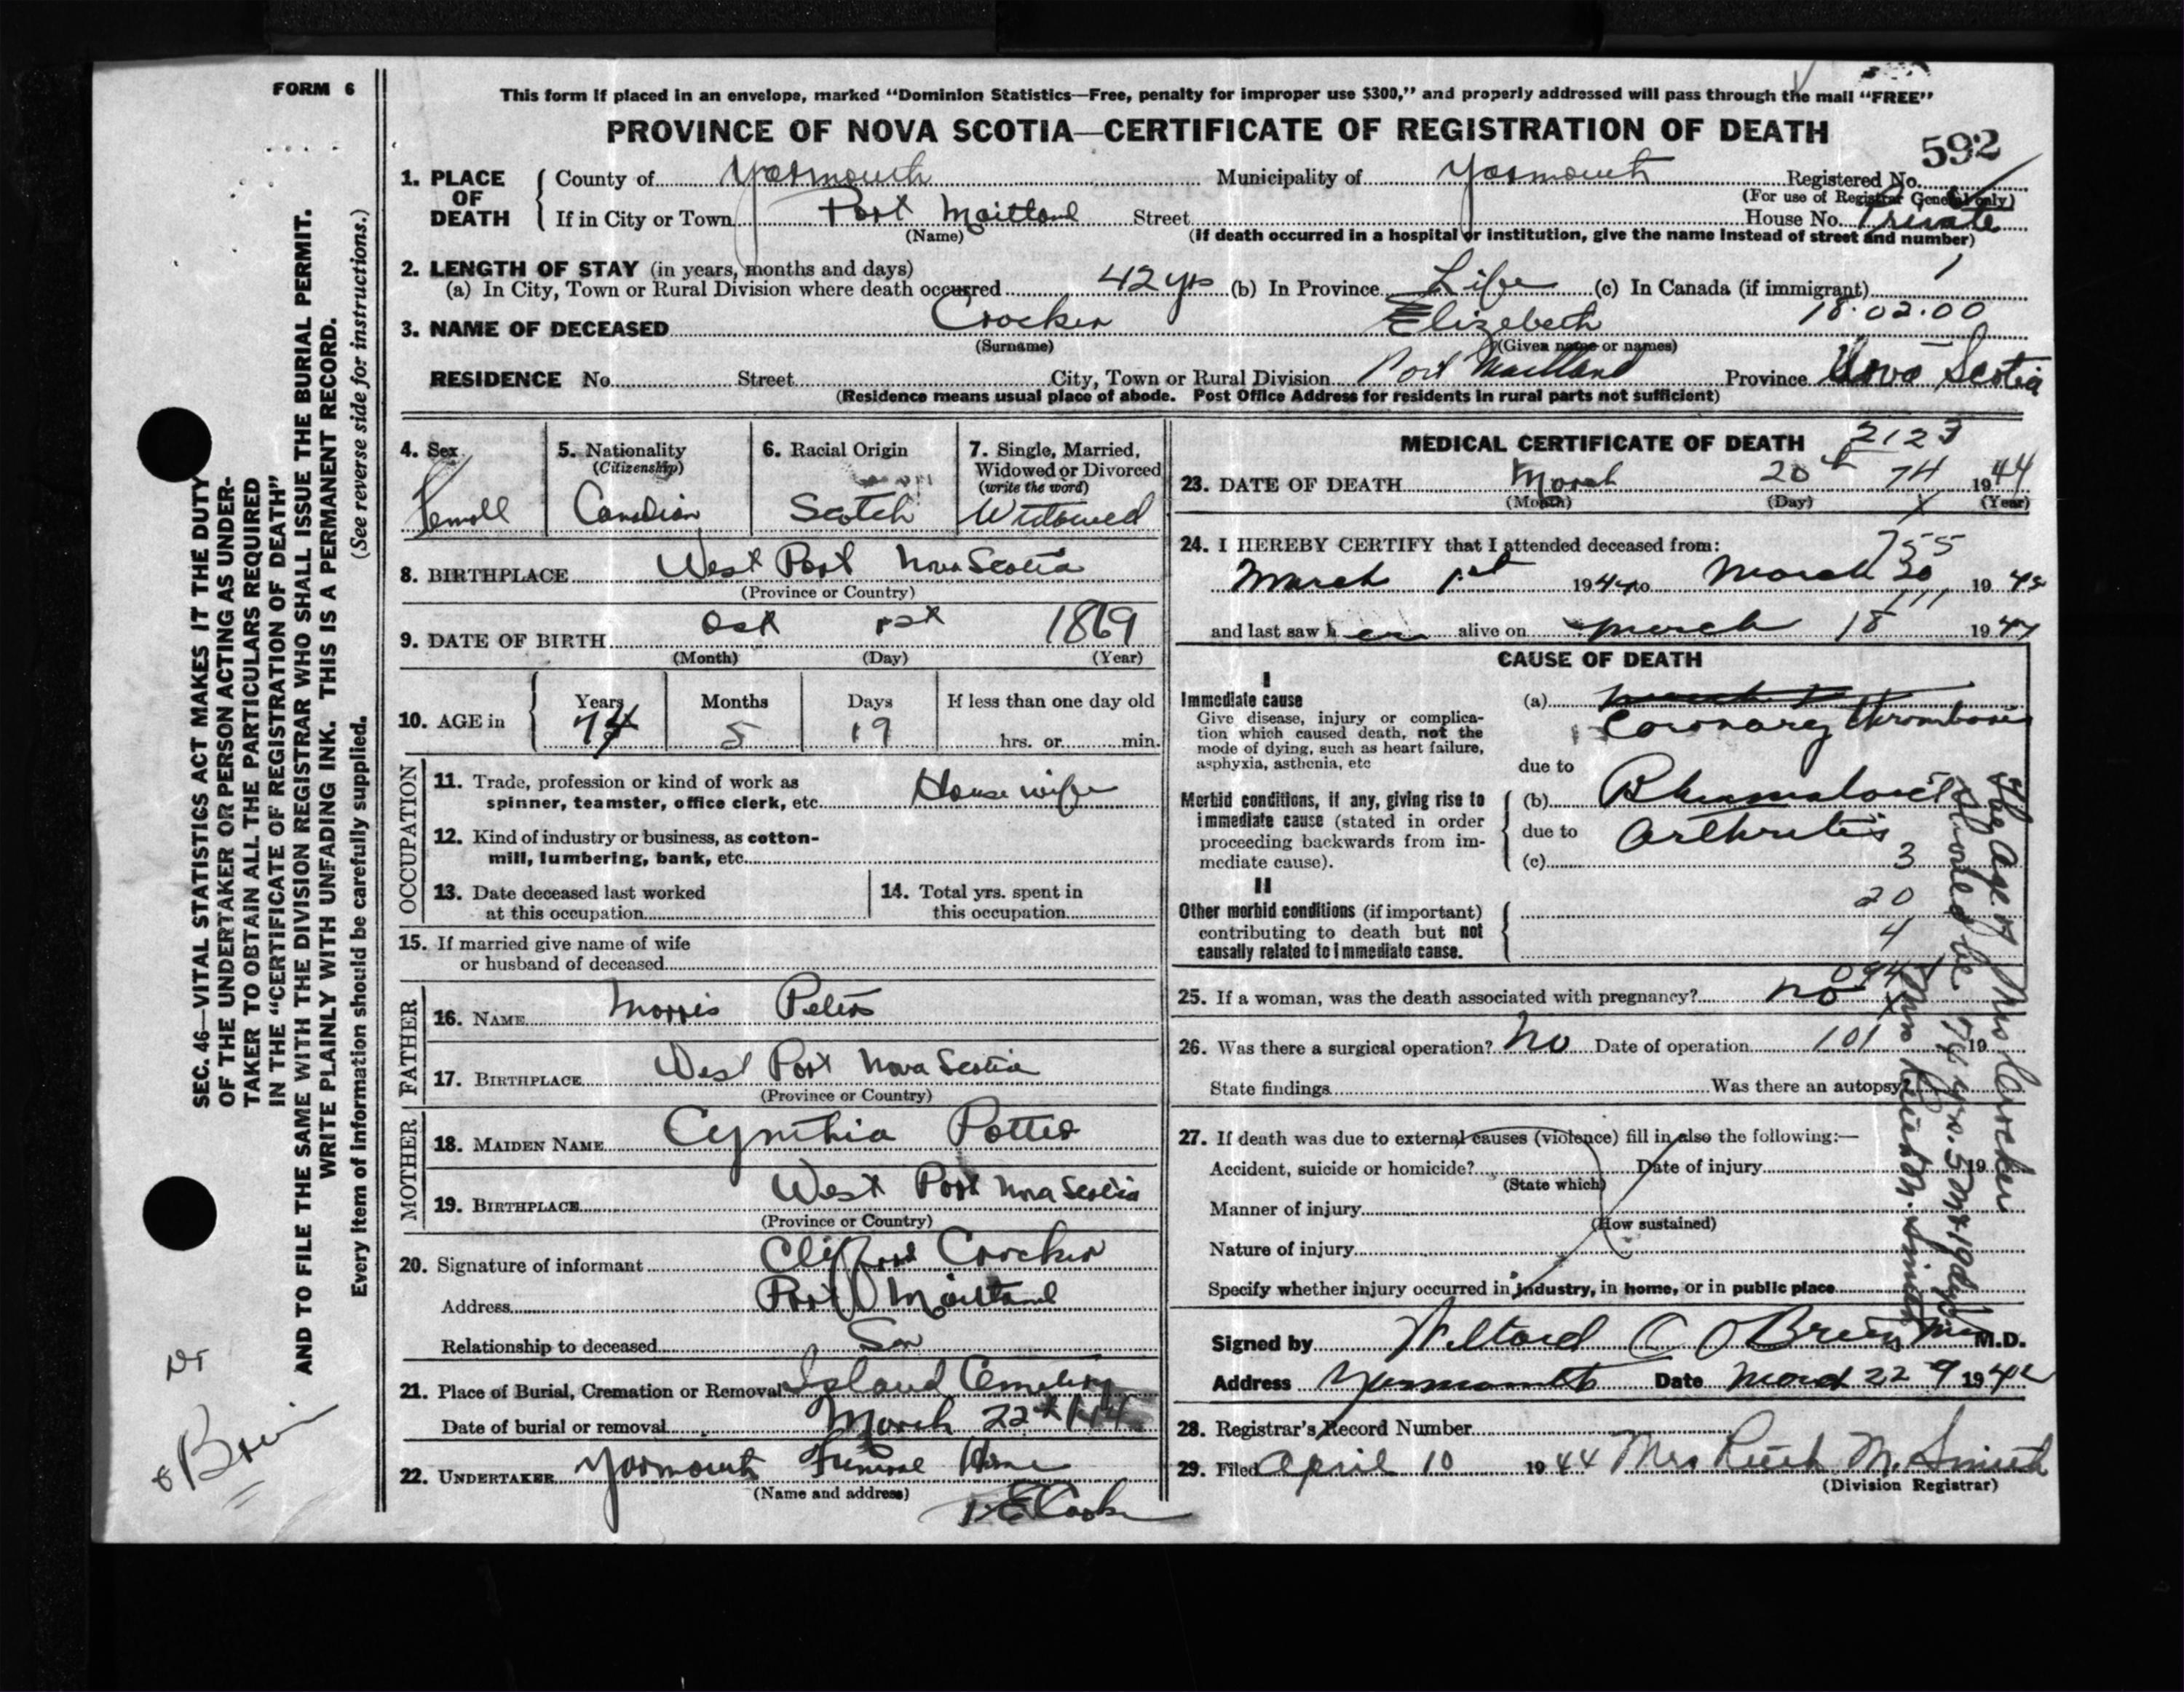 FORM 6
This form if placed in an envelope, marked "Dominion Statistics—Free, penalty for improper use $300," and properly addressed will pass through the mail "FREE"
PROVINCE OF NOVA SCOTIA—CERTIFICATE OF REGISTRATION OF DEATH
592
1. PLACE OF DEATH { County of Yarmouth Municipality of Yarmouth Registered No.
(For use of Registrar General only)
If in City or Town Port Maitland Street House No. Private
(Name) (If death occurred in a hospital or institution, give the name instead of street and number)
2. LENGTH OF STAY (in years, months and days)
(a) In City, Town or Rural Division where death occurred 42 yrs (b) In Province Life (c) In Canada (if immigrant)
18.02.00
3. NAME OF DECEASED Crocker Elizebeth
(Surname) (Given name or names)
RESIDENCE No. Street City, Town or Rural Division Port Maitland Province Nova Scotia
(Residence means usual place of abode. Post Office Address for residents in rural parts not sufficient)
4. Sex 5. Nationality 6. Racial Origin 7. Single, Married,
(Citizenship) Widowed or Divorced
(write the word)
Femall Canadian Scotch Widowed
8. BIRTHPLACE West Port Nova Scotia
(Province or Country)
9. DATE OF BIRTH Oct 1st 1869
(Month) (Day) (Year)
10. AGE in Years Months Days If less than one day old
74 5 19 hrs. or min.
OCCUPATION
11. Trade, profession or kind of work as
spinner, teamster, office clerk, etc. House wife
12. Kind of industry or business, as cotton-
mill, lumbering, bank, etc.
13. Date deceased last worked
at this occupation
14. Total yrs. spent in
this occupation
15. If married give name of wife
or husband of deceased
FATHER
16. NAME Morris Peters
17. BIRTHPLACE West Port Nova Scotia
(Province or Country)
MOTHER
18. MAIDEN NAME Cynthia Potter
19. BIRTHPLACE West Port Nova Scotia
(Province or Country)
20. Signature of informant Clifford Crocker
Address Port Maitland
Relationship to deceased Son
21. Place of Burial, Cremation or Removal Island Cemetery
Date of burial or removal March 22
22. UNDERTAKER Yarmouth Funeral Home
(Name and address)
MEDICAL CERTIFICATE OF DEATH 2123
23. DATE OF DEATH March 20th 74 1944
(Month) (Day) (Year)
24. I HEREBY CERTIFY that I attended deceased from: 755
March 1st 194 to March 20 19
and last saw her alive on March 18 1944
CAUSE OF DEATH
I
Immediate cause
Give disease, injury or complica-
tion which caused death, not the
mode of dying, such as heart failure,
asphyxia, asthenia, etc
(a) Coronary thrombosis
due to
Morbid conditions, if any, giving rise to
immediate cause (stated in order
proceeding backwards from im-
mediate cause).
(b) Rhumatoid
due to Arthritis
(c) 3
II
Other morbid conditions (if important)
contributing to death but not
causally related to immediate cause.
20
4
25. If a woman, was the death associated with pregnancy? no
26. Was there a surgical operation? No Date of operation 101 19
State findings Was there an autopsy?
27. If death was due to external causes (violence) fill in also the following:—
Accident, suicide or homicide? Date of injury 19
(State which)
Manner of injury
(How sustained)
Nature of injury
Specify whether injury occurred in industry, in home, or in public place
Signed by O'Brien M.D.
Address Yarmouth Date March 22 19
28. Registrar's Record Number
29. Filed April 10 1944 Mrs Ruth M. Smith
(Division Registrar)
The Age of Mrs Crocker
should be 74 yrs. 5 m 19 days
Mrs Ruth M. Smith
SEC. 46—VITAL STATISTICS ACT MAKES IT THE DUTY
OF THE UNDERTAKER OR PERSON ACTING AS UNDER-
TAKER TO OBTAIN ALL THE PARTICULARS REQUIRED
IN THE "CERTIFICATE OF REGISTRATION OF DEATH"
AND TO FILE THE SAME WITH THE DIVISION REGISTRAR WHO SHALL ISSUE THE BURIAL PERMIT.
WRITE PLAINLY WITH UNFADING INK. THIS IS A PERMANENT RECORD.
Every item of information should be carefully supplied. (See reverse side for instructions.)
Dr